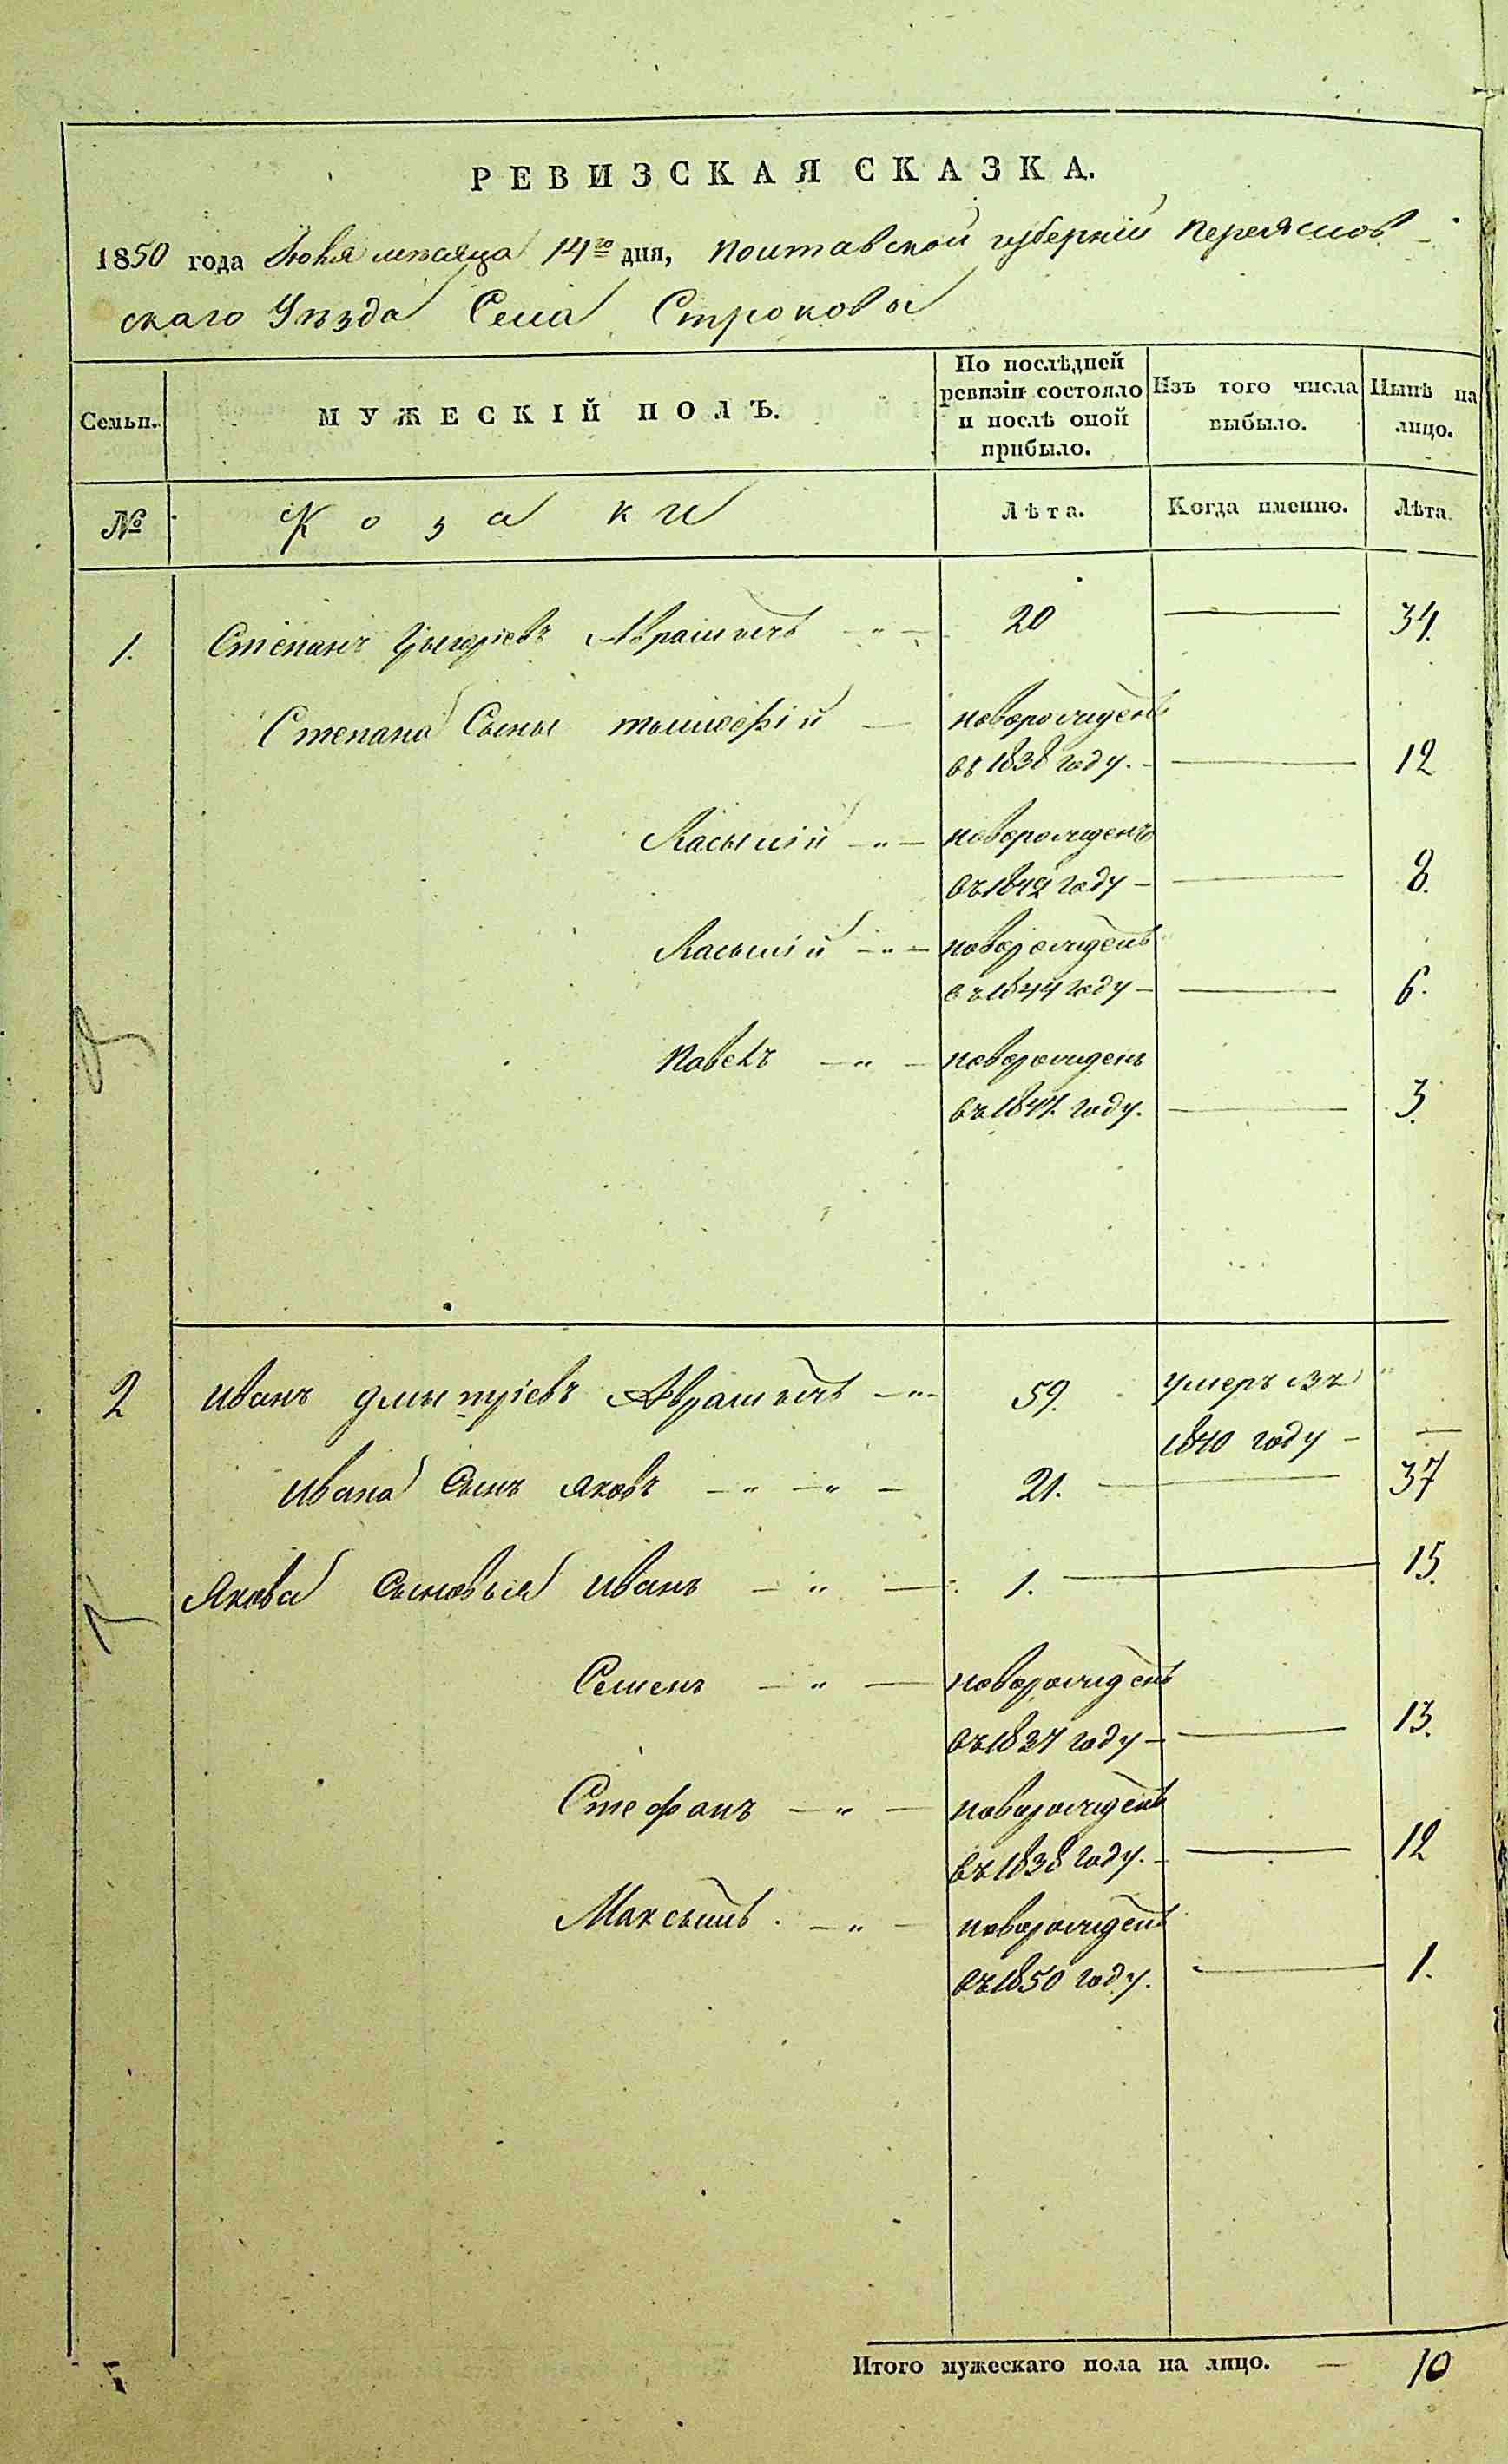 РЕВИЗСКАЯ СКАЗКА.
1850 года Июня месяца 14го дня, Полтавской губернии Переяслов
скаго Уѣзда Села Строковы
Семьи.
МУЖЕСКІЙ ПОЛЪ.
По послѣдней ревизіи состояло и послѣ оной прибыло.
Изъ того числа выбыло.
Нынѣ на лицо.
№
Козаки
Лѣта.
Когда именно.
Лѣта.
1. Степанъ Аврамычъ —"— 20 — 34.
Степана Сыны — новорожденъ
въ 1838 году. — 12
Касьянъ —"— новорожденъ
въ 1842 году — 8.
—"— новорожденъ
въ 1844 году — 6.
Павелъ —"— новорожденъ
въ 1847 году. — 3.
2 Иванъ Дмытріевъ Аврамычъ —"— 59. умеръ въ
1840 году —
Ивана Сынъ Яковъ —"—"— 21. — 37
Якова Сыновья Иванъ —"— 1. — 15.
Семенъ —"— новорожденъ
въ 1837 году — 13.
Стефанъ —"— новорожденъ
въ 1838 году. — 12
Максымъ. —"— новорожденъ
въ 1850 году. — 1.
Итого мужескаго пола на лицо. — 10